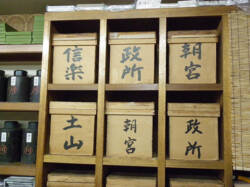 信楽
政所
朝宮
土山
朝宮
政所